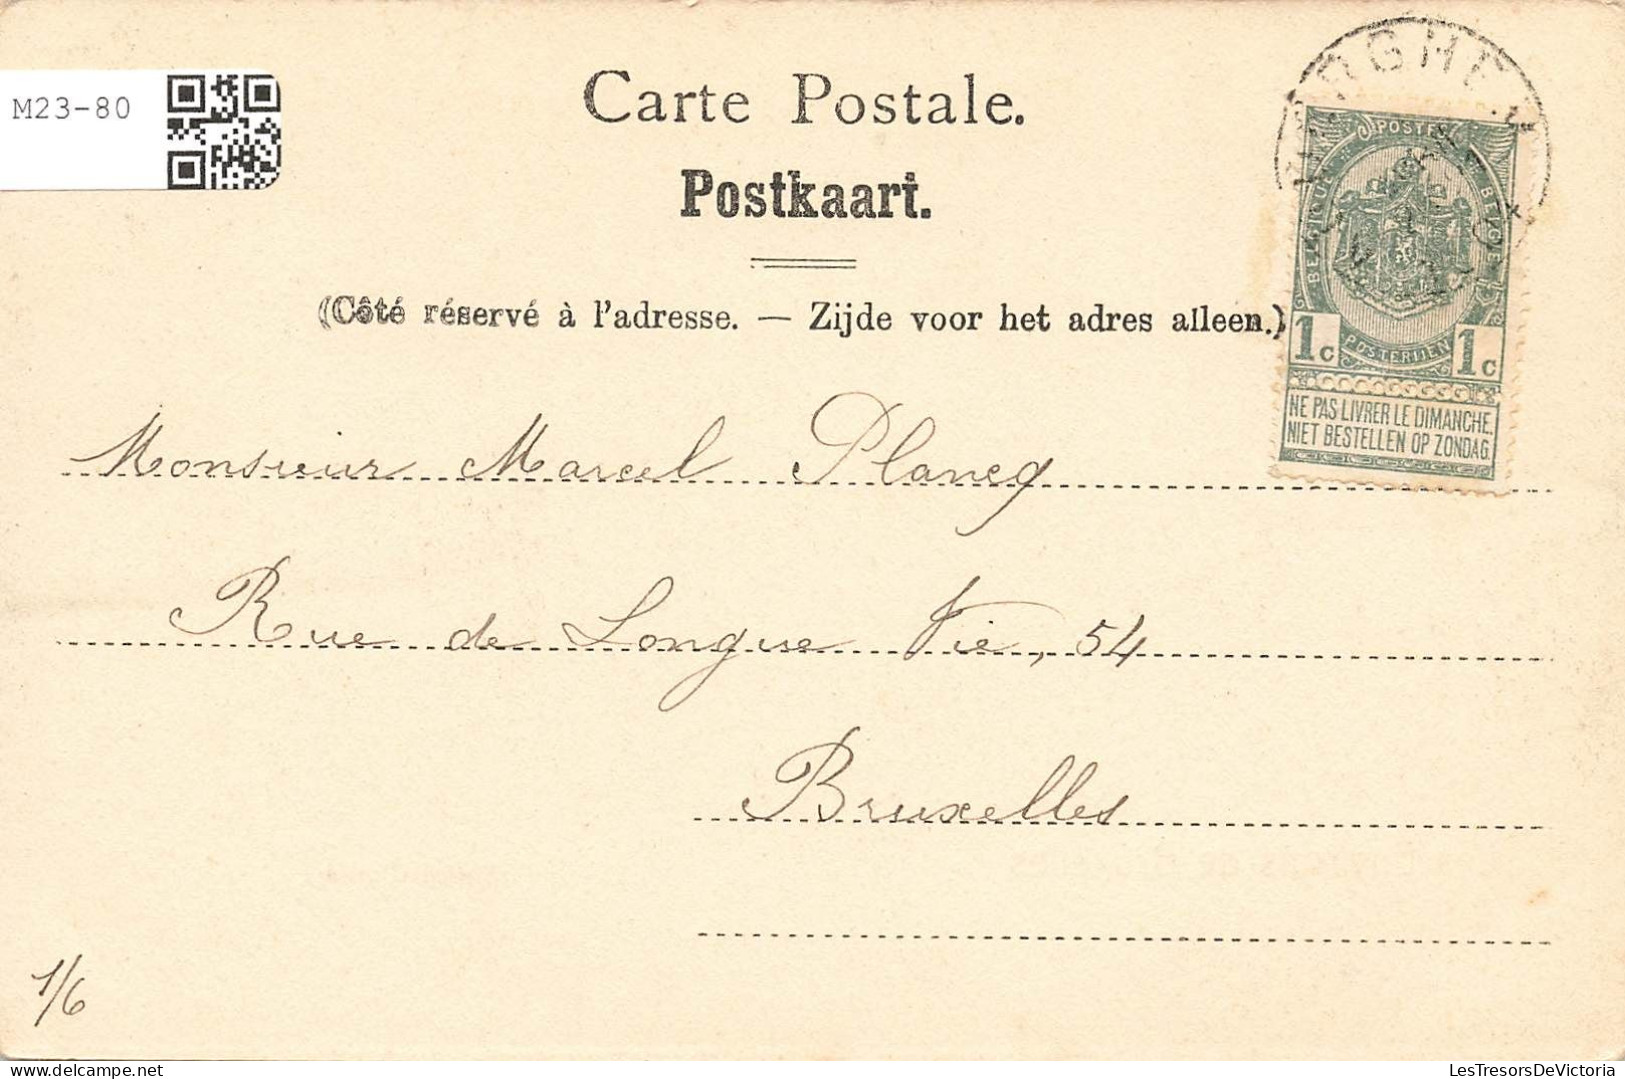 M23-80
Carte Postale.
Postkaart.
(Côté réservé à l'adresse. — Zijde voor het adres alleen.)
POSTES
BELGIQUE
BELGIË
POSTERIJEN
1c 1c
NE PAS LIVRER LE DIMANCHE.
NIET BESTELLEN OP ZONDAG.
Monsieur Marcel Plancq
Rue de Longue Vie, 54
Bruxelles
1/6
LesTresorsDeVictoria